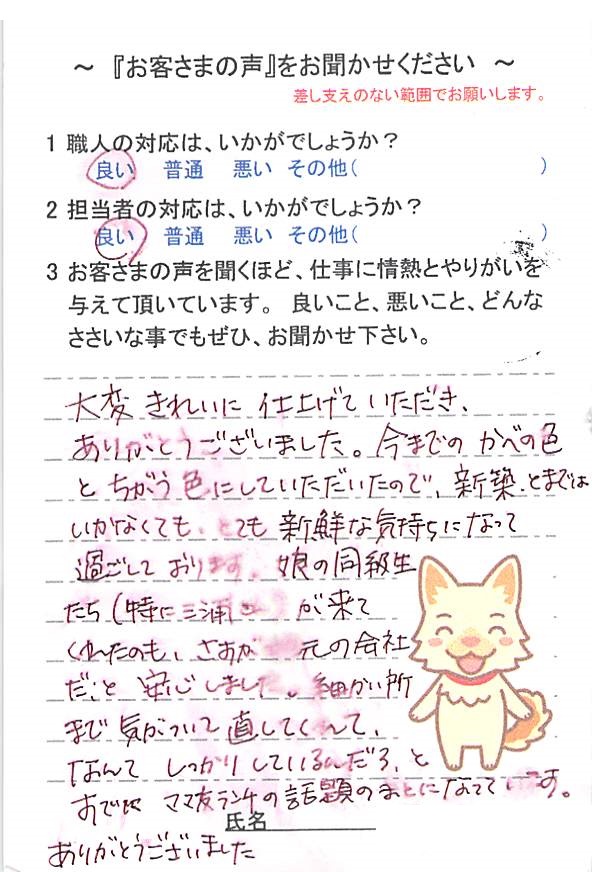 ～『お客さまの声』をお聞かせください ～
差し支えのない範囲でお願いします。
1 職人の対応は、いかがでしょうか？
良い 普通 悪い その他( )
2 担当者の対応は、いかがでしょうか？
良い 普通 悪い その他( )
3 お客さまの声を聞くほど、仕事に情熱とやりがいを
与えて頂いています。 良いこと、悪いこと、どんな
ささいな事でもぜひ、お聞かせ下さい。
大変 きれいに 仕上げて いただき、
ありがとうございました。今までの かべの色
と ちがう 色にしていただいたので、新築とまでは
いかなくても、とても 新鮮な気持ちになって
過ごして おります。娘の同級生
たち(特に三浦 が来て
くれたのも、さすが 元の会社
だ、と 安心しました。細かい所
まで 気がついて 直してくれて、
なんて しっかり しているんだろ、と
ママ友ランチの話題のまとになっています。
氏名
ありがとうございました